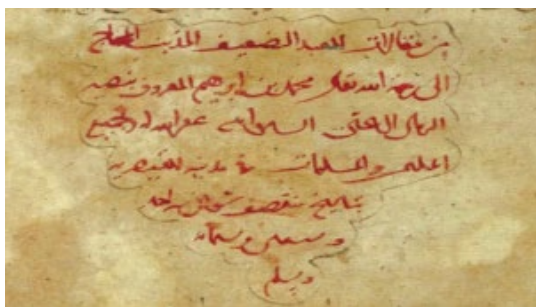 من مقالات العبد الضعيف المذنب المحتاج
الى رحمة الله تعالى محمد بن ابرهيم المعروف بنصير
الرمال المعزى السيواسى غفر الله له ولجميع
المسلمين والمسلمات فى مدينة القيصرية
بتاريخ منتصف شوال سنة احد
وسبعين وستمائة